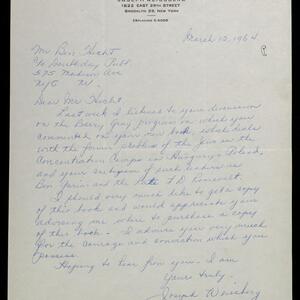 JOSEPH WEISBERG
1822 EAST 29TH STREET
BROOKLYN 29, NEW YORK
ESPLANADE
March 12, 1964
Mr Ben Hecht
c/o Doubleday Publ.
575 Madison Ave
NYC N.Y.
Dear Mr. Hecht,
Last week I listened to your discussion
on the Barry Gray program on which you
commented on your new book, which deals
with the former plight of the Jews in the
Concentration Camps in Hungary & Poland,
and your critique of such leaders as
Ben Gurion and the late F D Roosevelt.
I should very much like to get a copy
of this book and would appreciate your
advising me where to purchase a copy
of this book. I admire you very much
for the courage and conviction which you
possess.
Hoping to hear from you. I am
Yours truly,
Joseph Weisberg